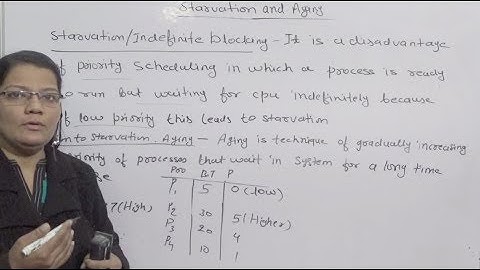 Starvation and Aging
Starvation/Indefinite blocking - It is a disadvantage
of priority Scheduling in which a process is ready
to run but waiting for cpu indefinitely because
of low priority this leads to starvation
to starvation. Aging - Aging is technique of gradually increasing
of processes that wait in System for a long time
Pro BT P
P1 5 0(low)
7(High) P2 30 5(Higher)
P3 20 4
P4 10 1